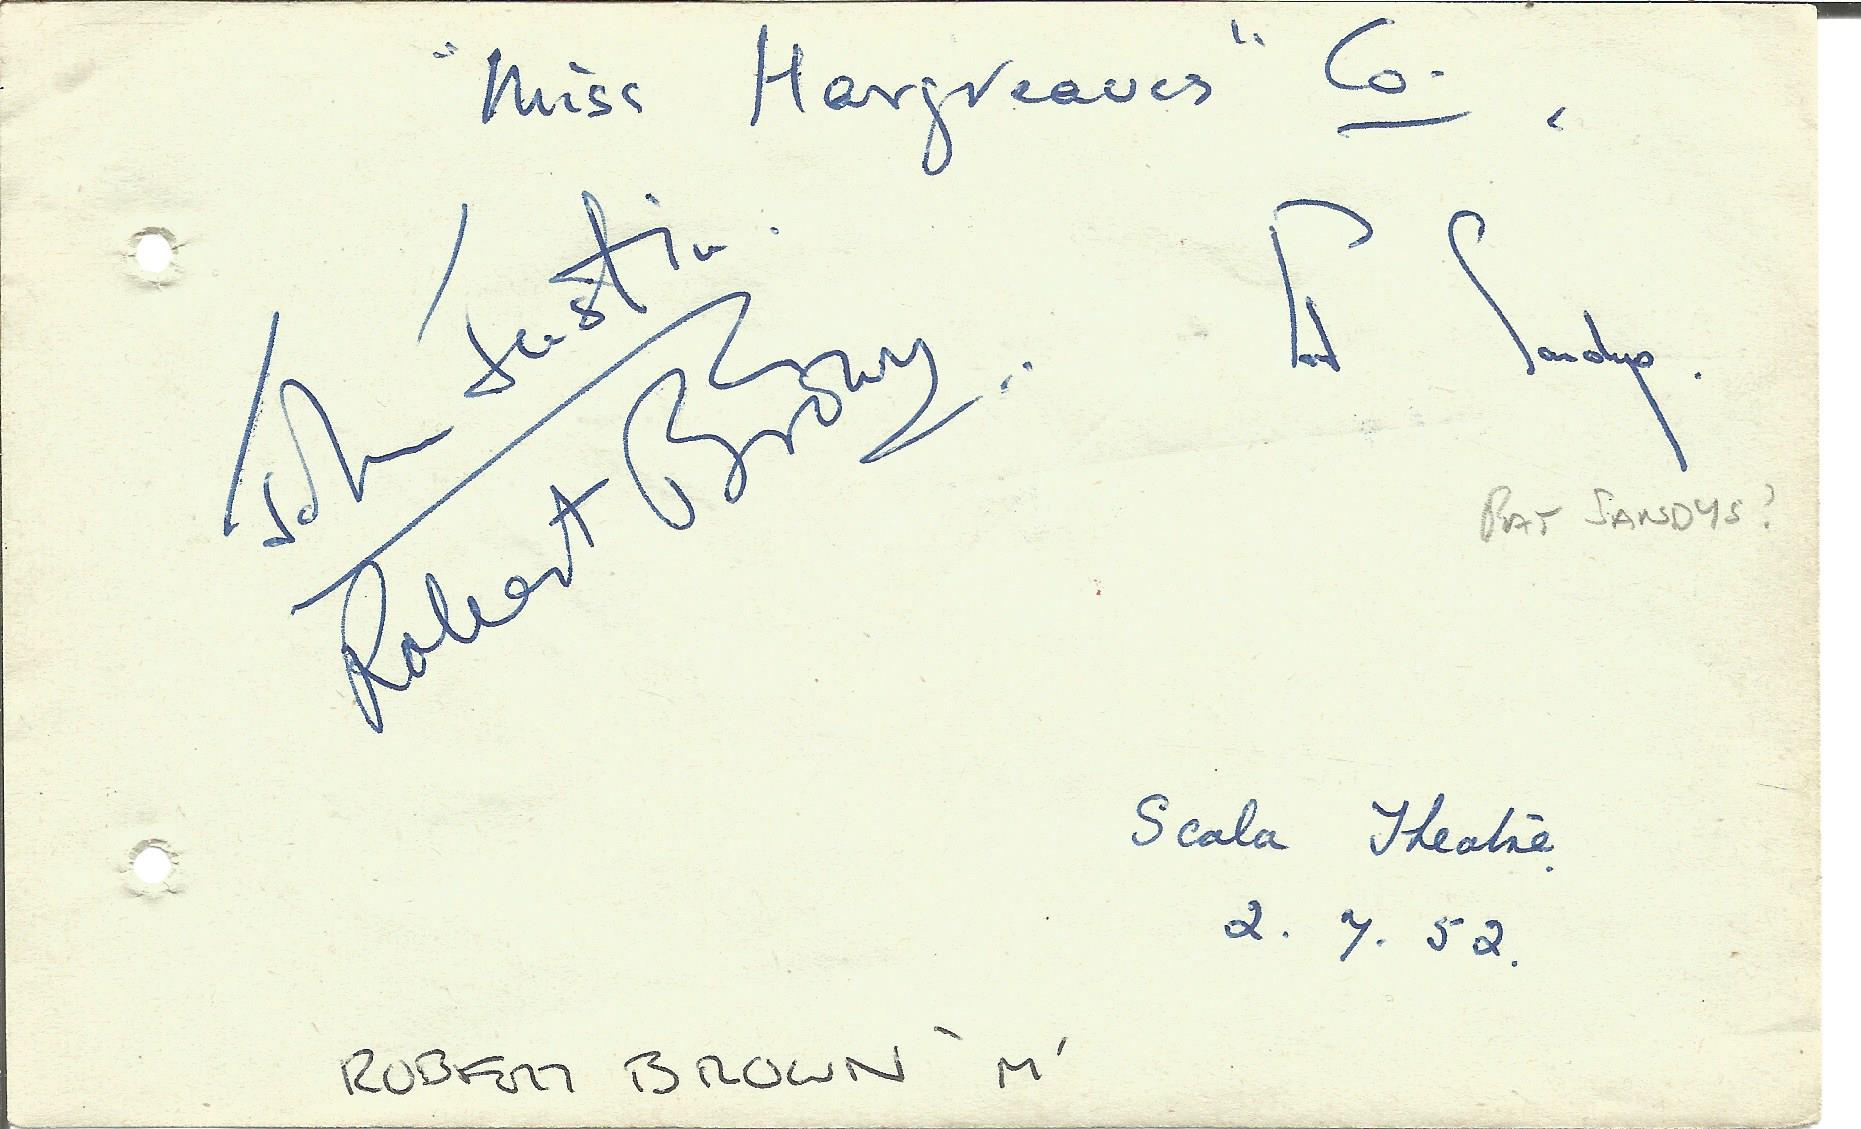 "Miss Hargreaves" Co.
John Justin.
Robert Brown
Pat Sandys.
PAT SANDYS?
Scala Theatre.
2. 7. 52.
ROBERT BROWN 'M'